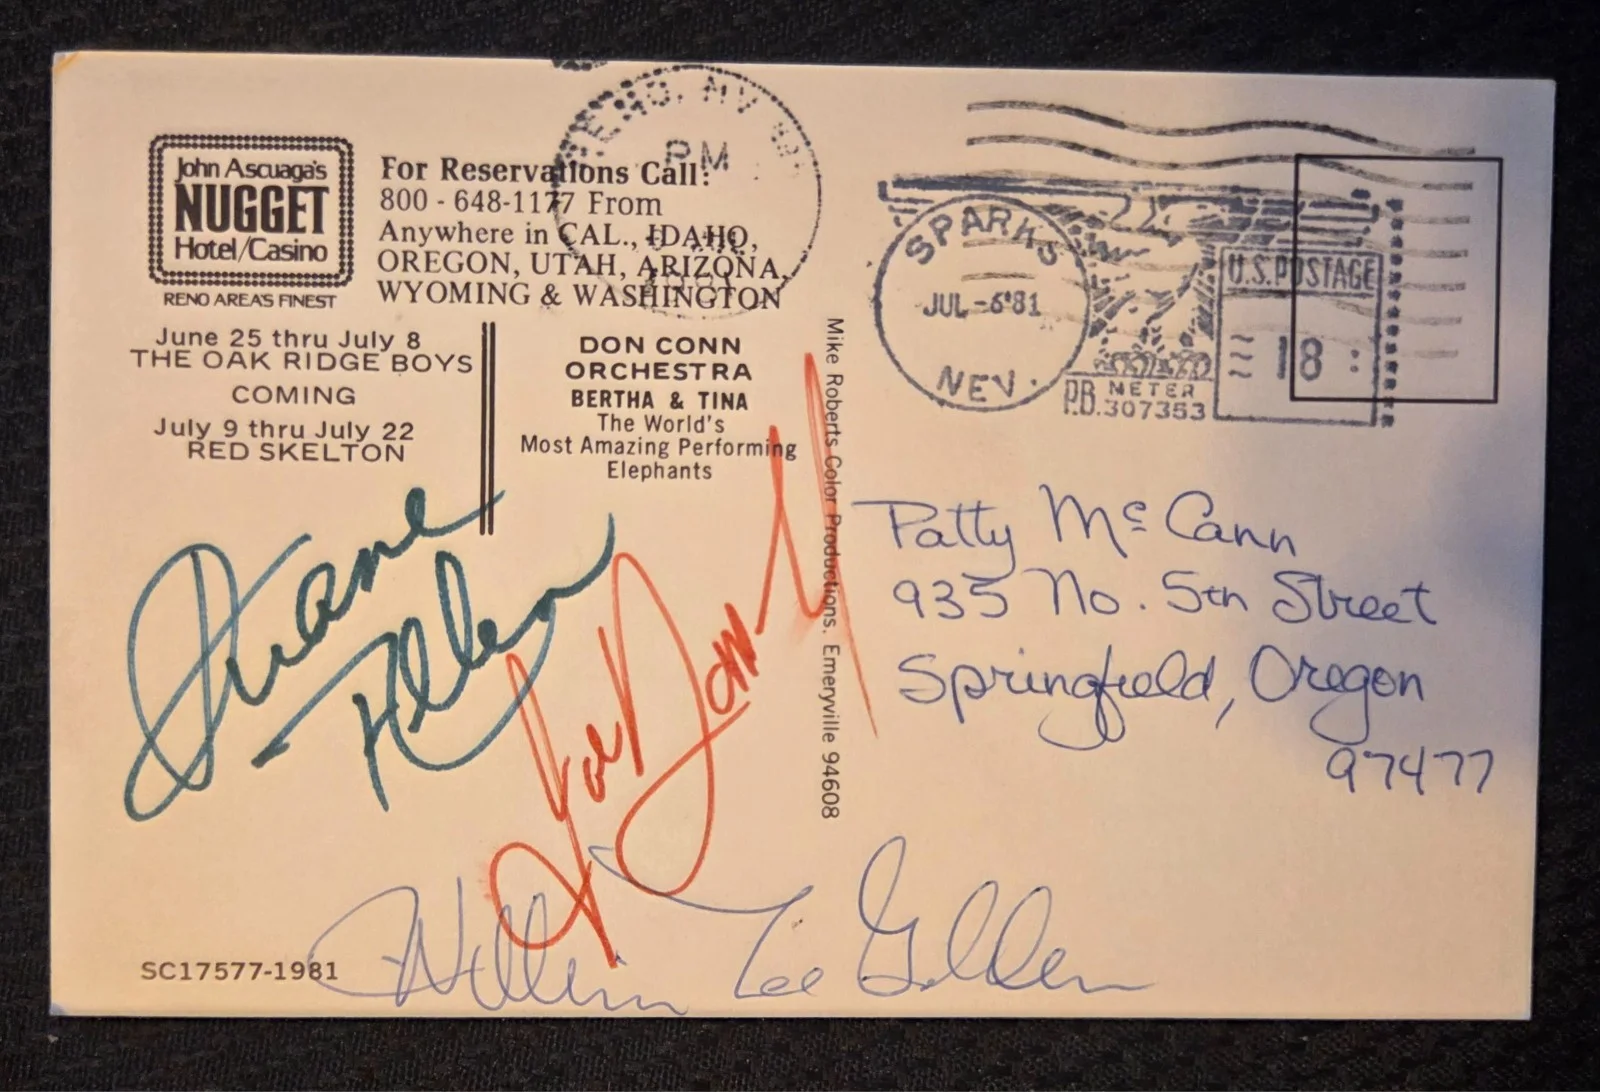 John Ascuaga's
NUGGET
Hotel/Casino
RENO AREA'S FINEST
For Reservations Call:
800 - 648-1177 From
Anywhere in CAL., IDAHO,
OREGON, UTAH, ARIZONA,
WYOMING & WASHINGTON
June 25 thru July 8
THE OAK RIDGE BOYS
COMING
July 9 thru July 22
RED SKELTON
DON CONN
ORCHESTRA
BERTHA & TINA
The World's
Most Amazing Performing
Elephants
RENO, NV
PM
1981
SPARKS
JUL -6 '81
NEV.
U.S. POSTAGE
18
P.B. METER
307353
Mike Roberts Color Productions. Emeryville 94608
Patty McCann
935 No. 5th Street
Springfield, Oregon
97477
Duane
Allen
Joe Bonsall
William Lee Golden
SC17577-1981